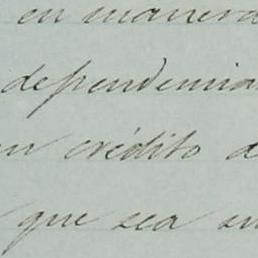 en manera
dependencia
un crédito d
que sea su